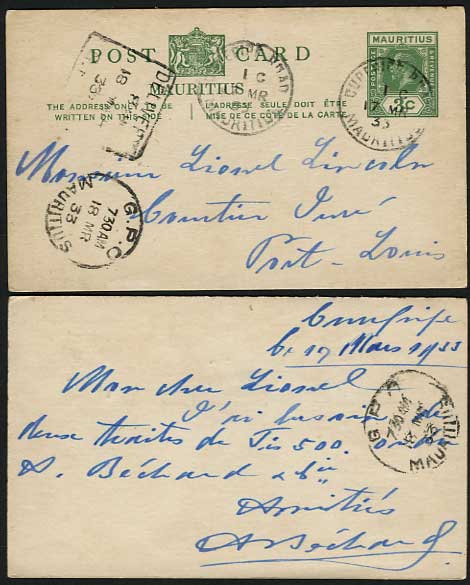 POST CARD
MAURITIUS
MAURITIUS
THE ADDRESS ONLY TO BE
WRITTEN ON THIS SIDE
L'ADRESSE SEULE DOIT ÊTRE
MISE DE CE CÔTÉ DE LA CARTE
CUREPIPE ROAD
1 C
MR
MAURITIUS
CUREPIPE
1 C
17 MR
33
MAURITIUS
18
33
G.P.O
7.30 AM
18 MR
33
MAURITIUS
Monsieur Lionel Lincoln
Courtier Juré
Port-Louis
Curepipe
Le 17 Mars 1933
Mon cher Lionel
J'ai besoin de
deux traites de 500.
A. Béchard & Cie
Amitiés
ABéchard
G.P.O
7.30 AM
18
33
MAURITIUS